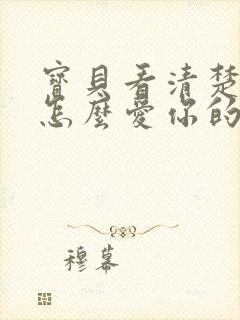 寶貝看清楚
怎麼愛你的
穆幕